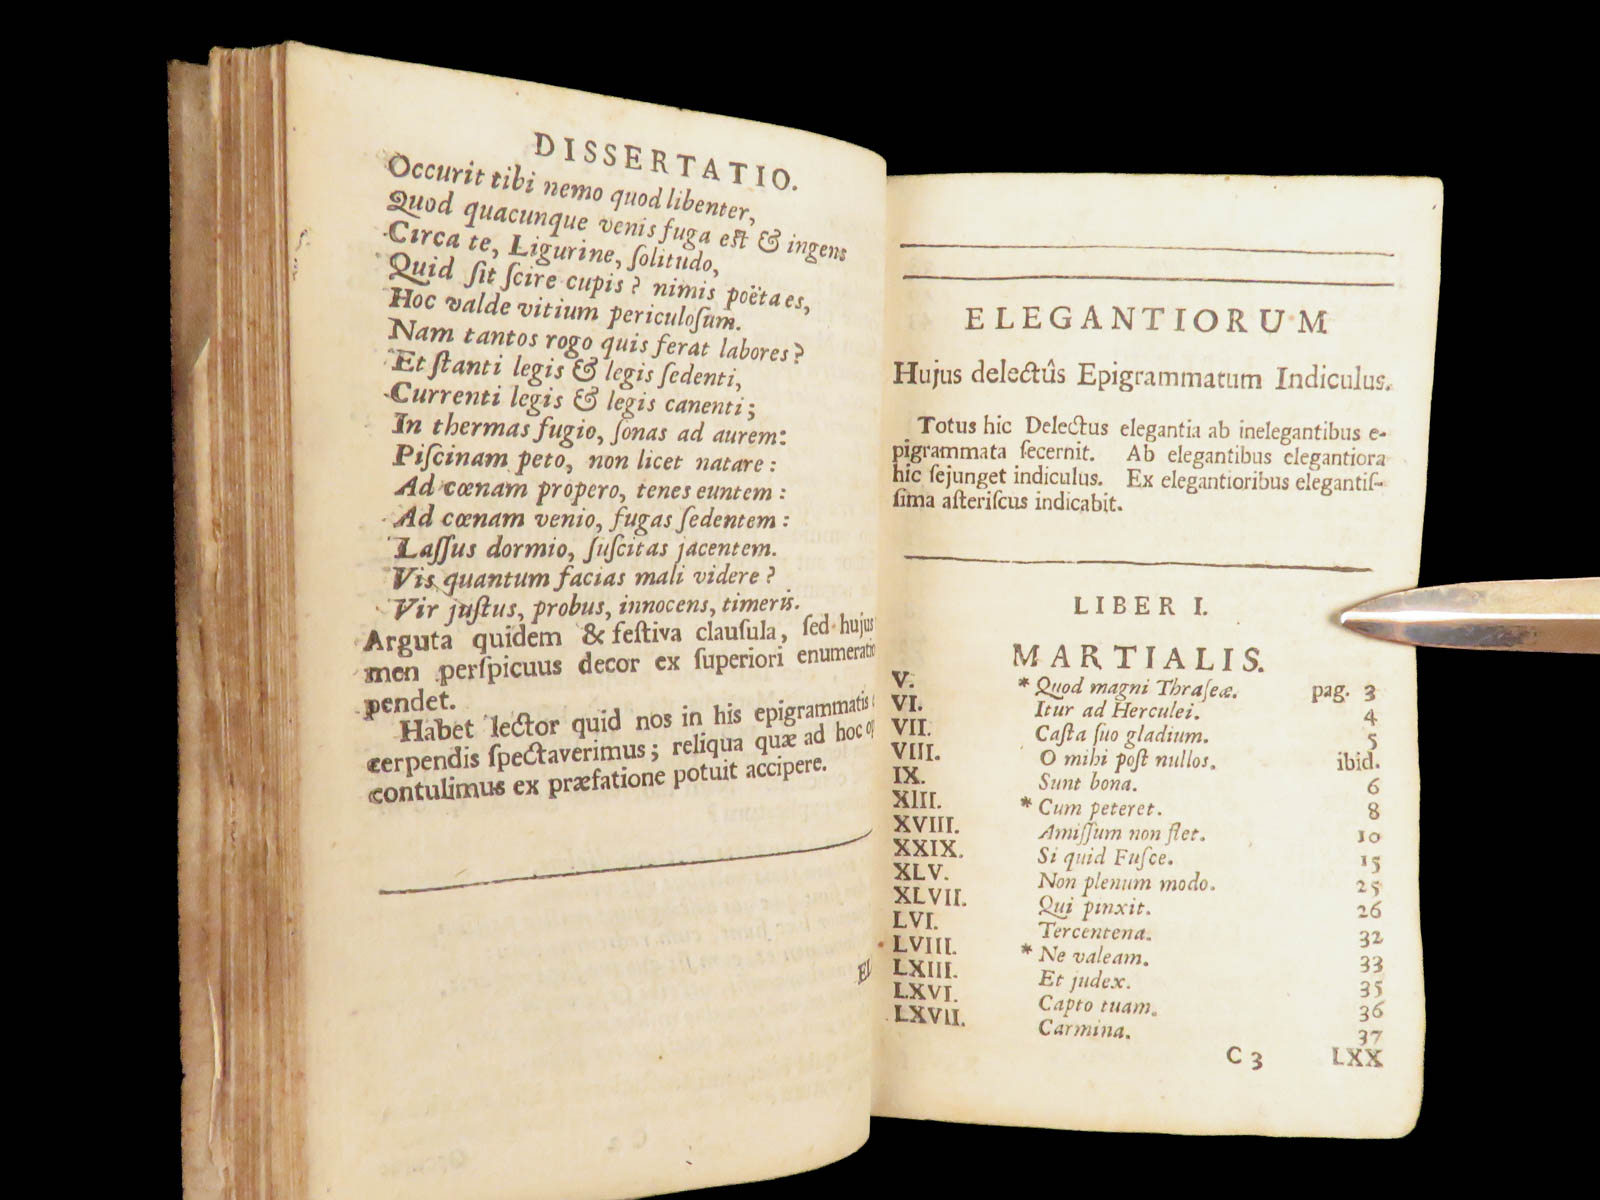 DISSERTATIO.
Occurit tibi nemo quod libenter,
Quod quacunque venis fuga est & ingens
Circa te, Ligurine, ſolitudo,
Quid ſit ſcire cupis? nimis poëta es,
Hoc valde vitium periculoſum.
Nam tantos rogo quis ferat labores?
Et ſtanti legis & legis ſedenti,
Currenti legis & legis canenti;
In thermas fugio, ſonas ad aurem:
Piſcinam peto, non licet natare:
Ad cœnam propero, tenes euntem:
Ad cœnam venio, fugas ſedentem:
Laſſus dormio, ſuſcitas jacentem.
Vis quantum facias mali videre?
Vir juſtus, probus, innocens, timeris.
Arguta quidem & feſtiva clauſula, ſed hujus
men perſpicuus decor ex ſuperiori enumeratio
pendet.
Habet lector quid nos in his epigrammatis
cerpendis ſpectaverimus; reliqua quæ ad hoc
contulimus ex præfatione potuit accipere.
EL
ELEGANTIORUM
Hujus delectûs Epigrammatum Indiculus.
Totus hic Delectus elegantia ab inelegantibus e-
pigrammata ſecernit. Ab elegantibus elegantiora
hic ſejunget indiculus. Ex elegantioribus elegantiſ-
ſima aſteriſcus indicabit.
LIBER I.
MARTIALIS.
V. * Quod magni Thraſeæ. pag. 3
VI. Itur ad Herculei. 4
VII. Caſta ſuo gladium. 5
VIII. O mihi poſt nullos. ibid.
IX. Sunt bona. 6
XIII. * Cum peteret. 8
XVIII. Amiſſum non flet. 10
XXIX. Si quid Fuſce. 15
XLV. Non plenum modo. 25
XLVII. Qui pinxit. 26
LVI. Tercentena. 32
LVIII. * Ne valeam. 33
LXIII. Et judex. 35
LXVI. Capto tuam. 36
LXVII. Carmina. 37
C 3 LXX